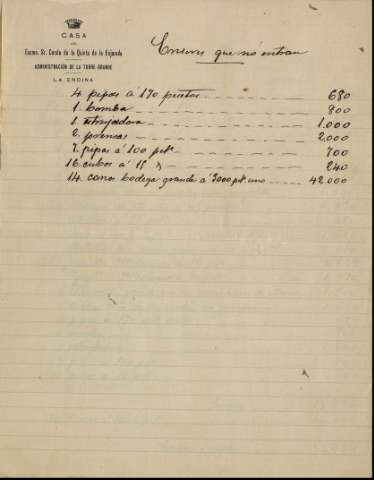 CASA
DEL
Excmo. Sr. Conde de la Quinta de la Enjarada
ADMINISTRACIÓN DE LA TORRE GRANDE
LA ENCINA
Enseres que no entran
4. pipas á 170 pesetas 680
1. bomba 800
1. estrujadora 1.000
2. prensas 2.000
7. pipas á 100 pts. 700
16. cubos á 15 240
14. conos bodega grande á 3000 pts. uno 42.000